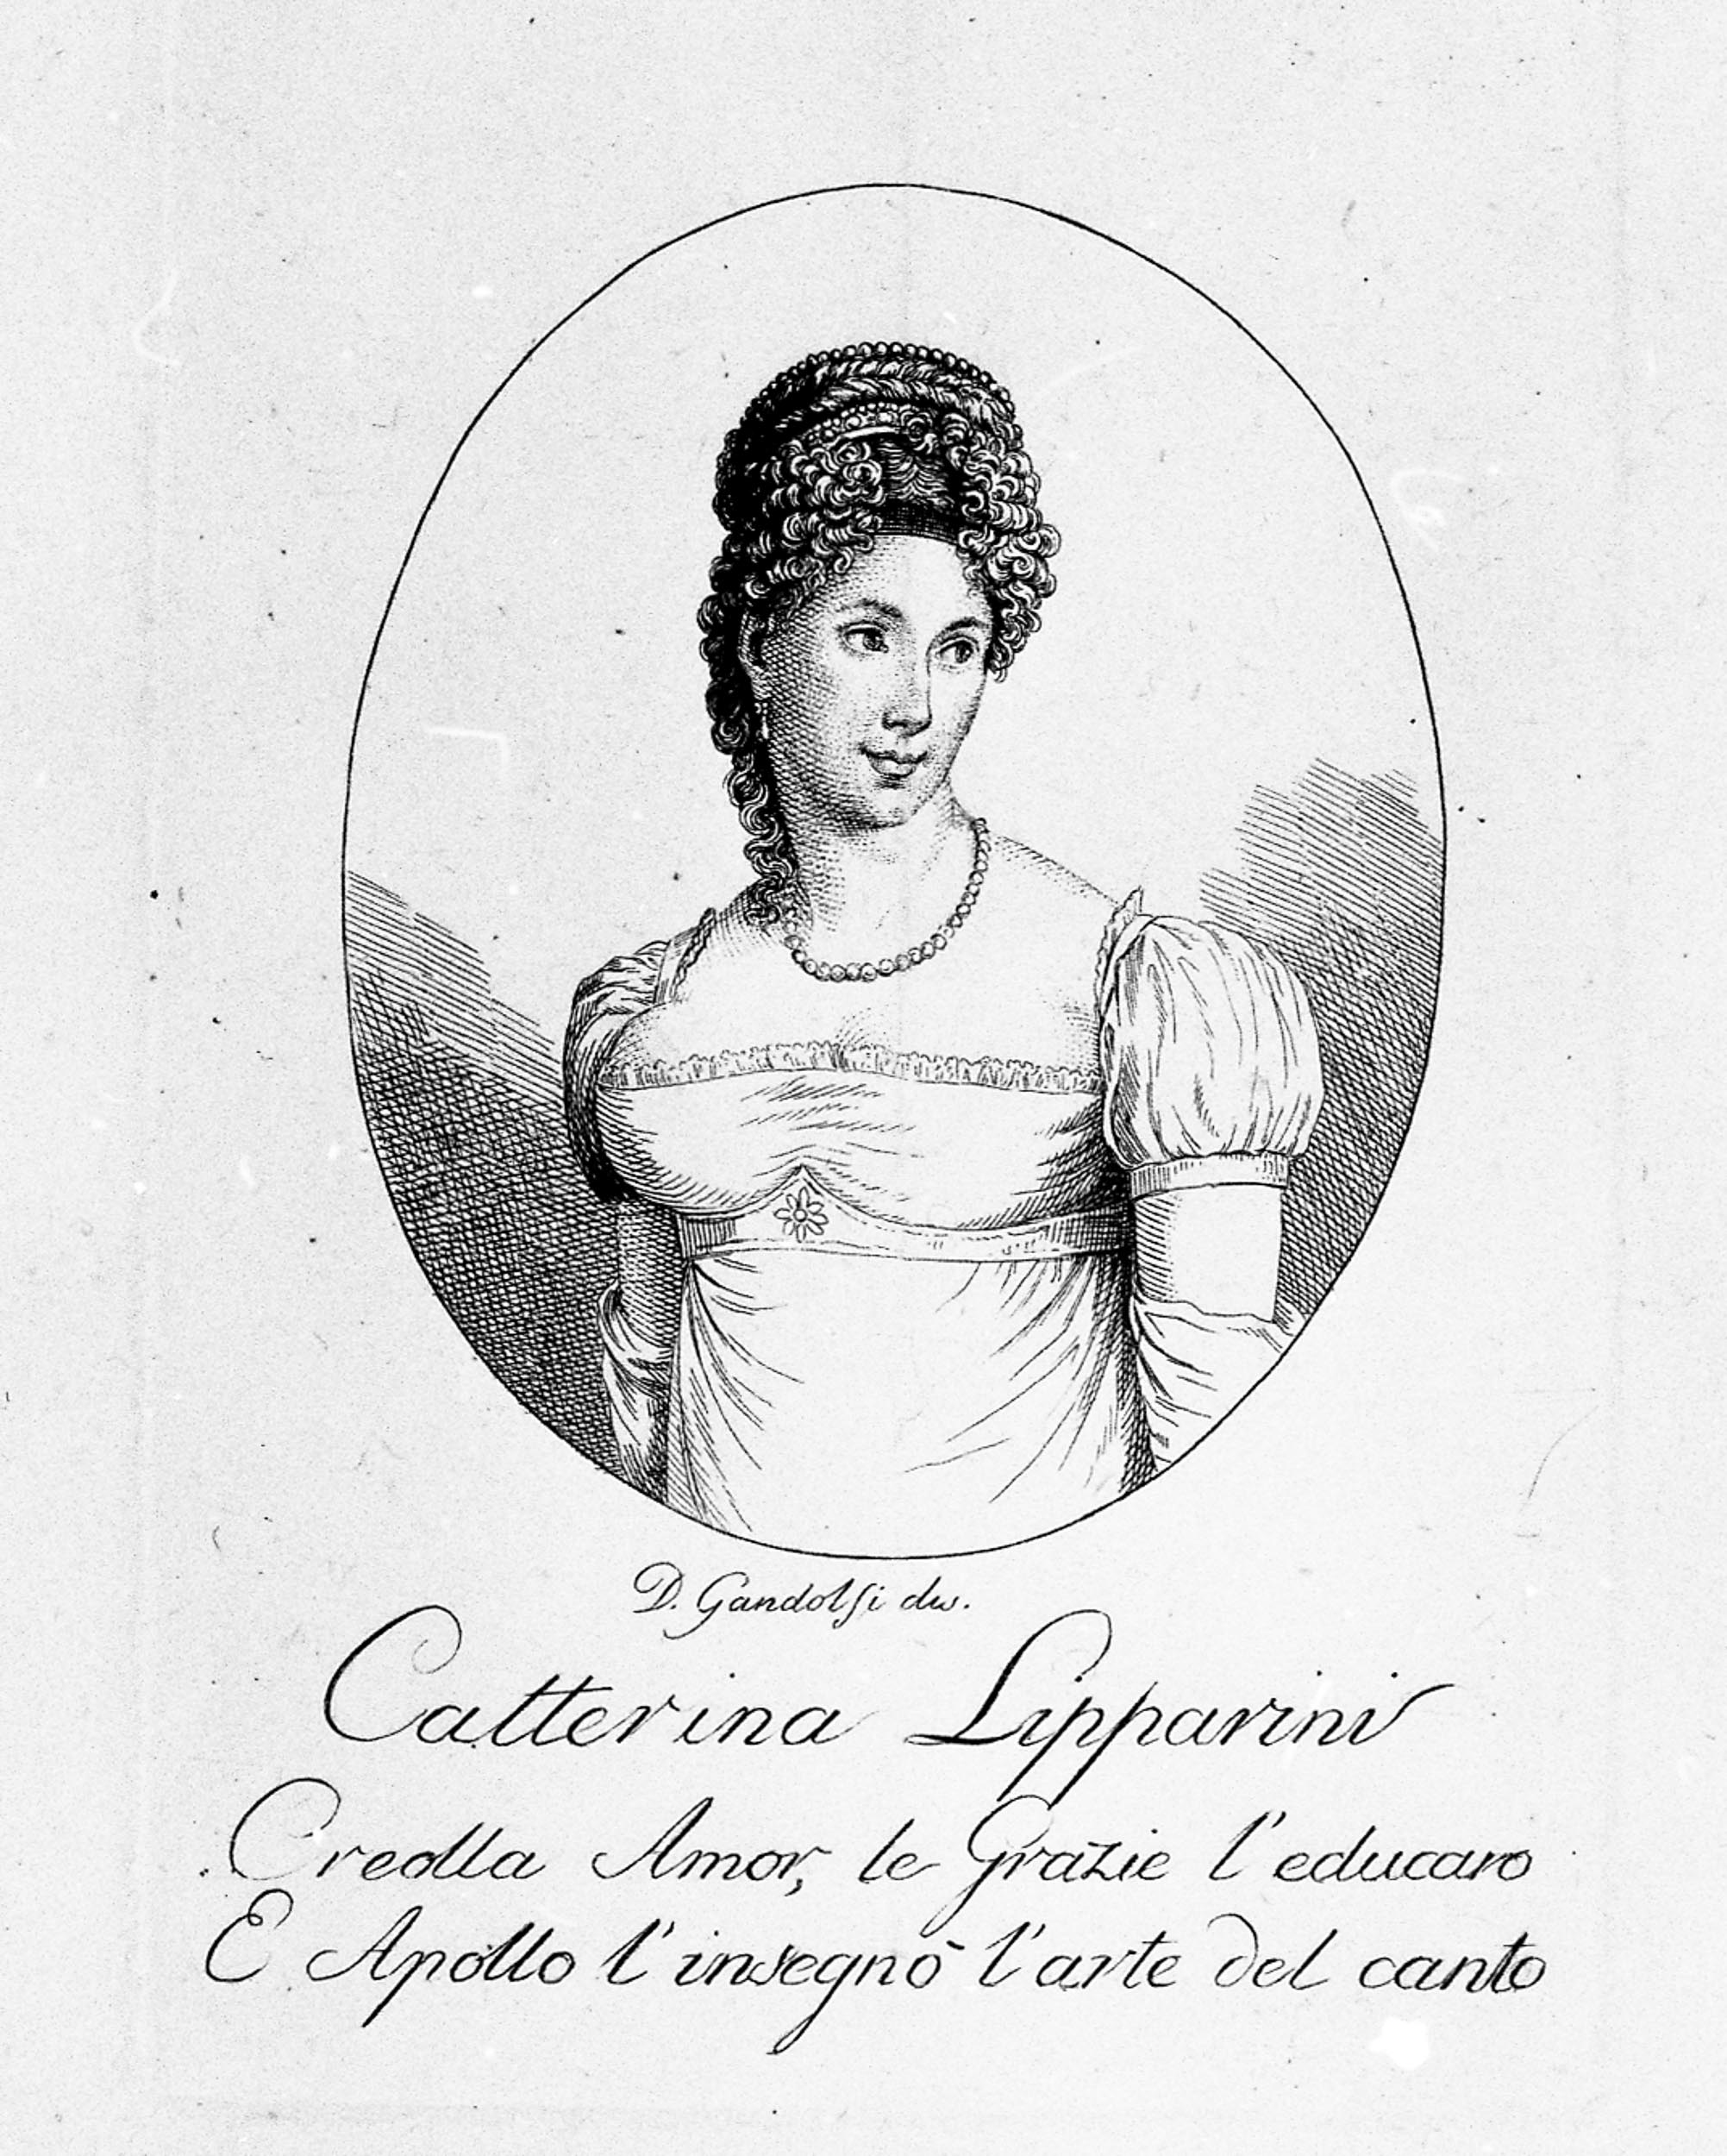 D. Gandolfi dis.
Catterina Lipparini
Creolla Amor, le Grazie l'educaro
E Apollo l'insegnò l'arte del canto